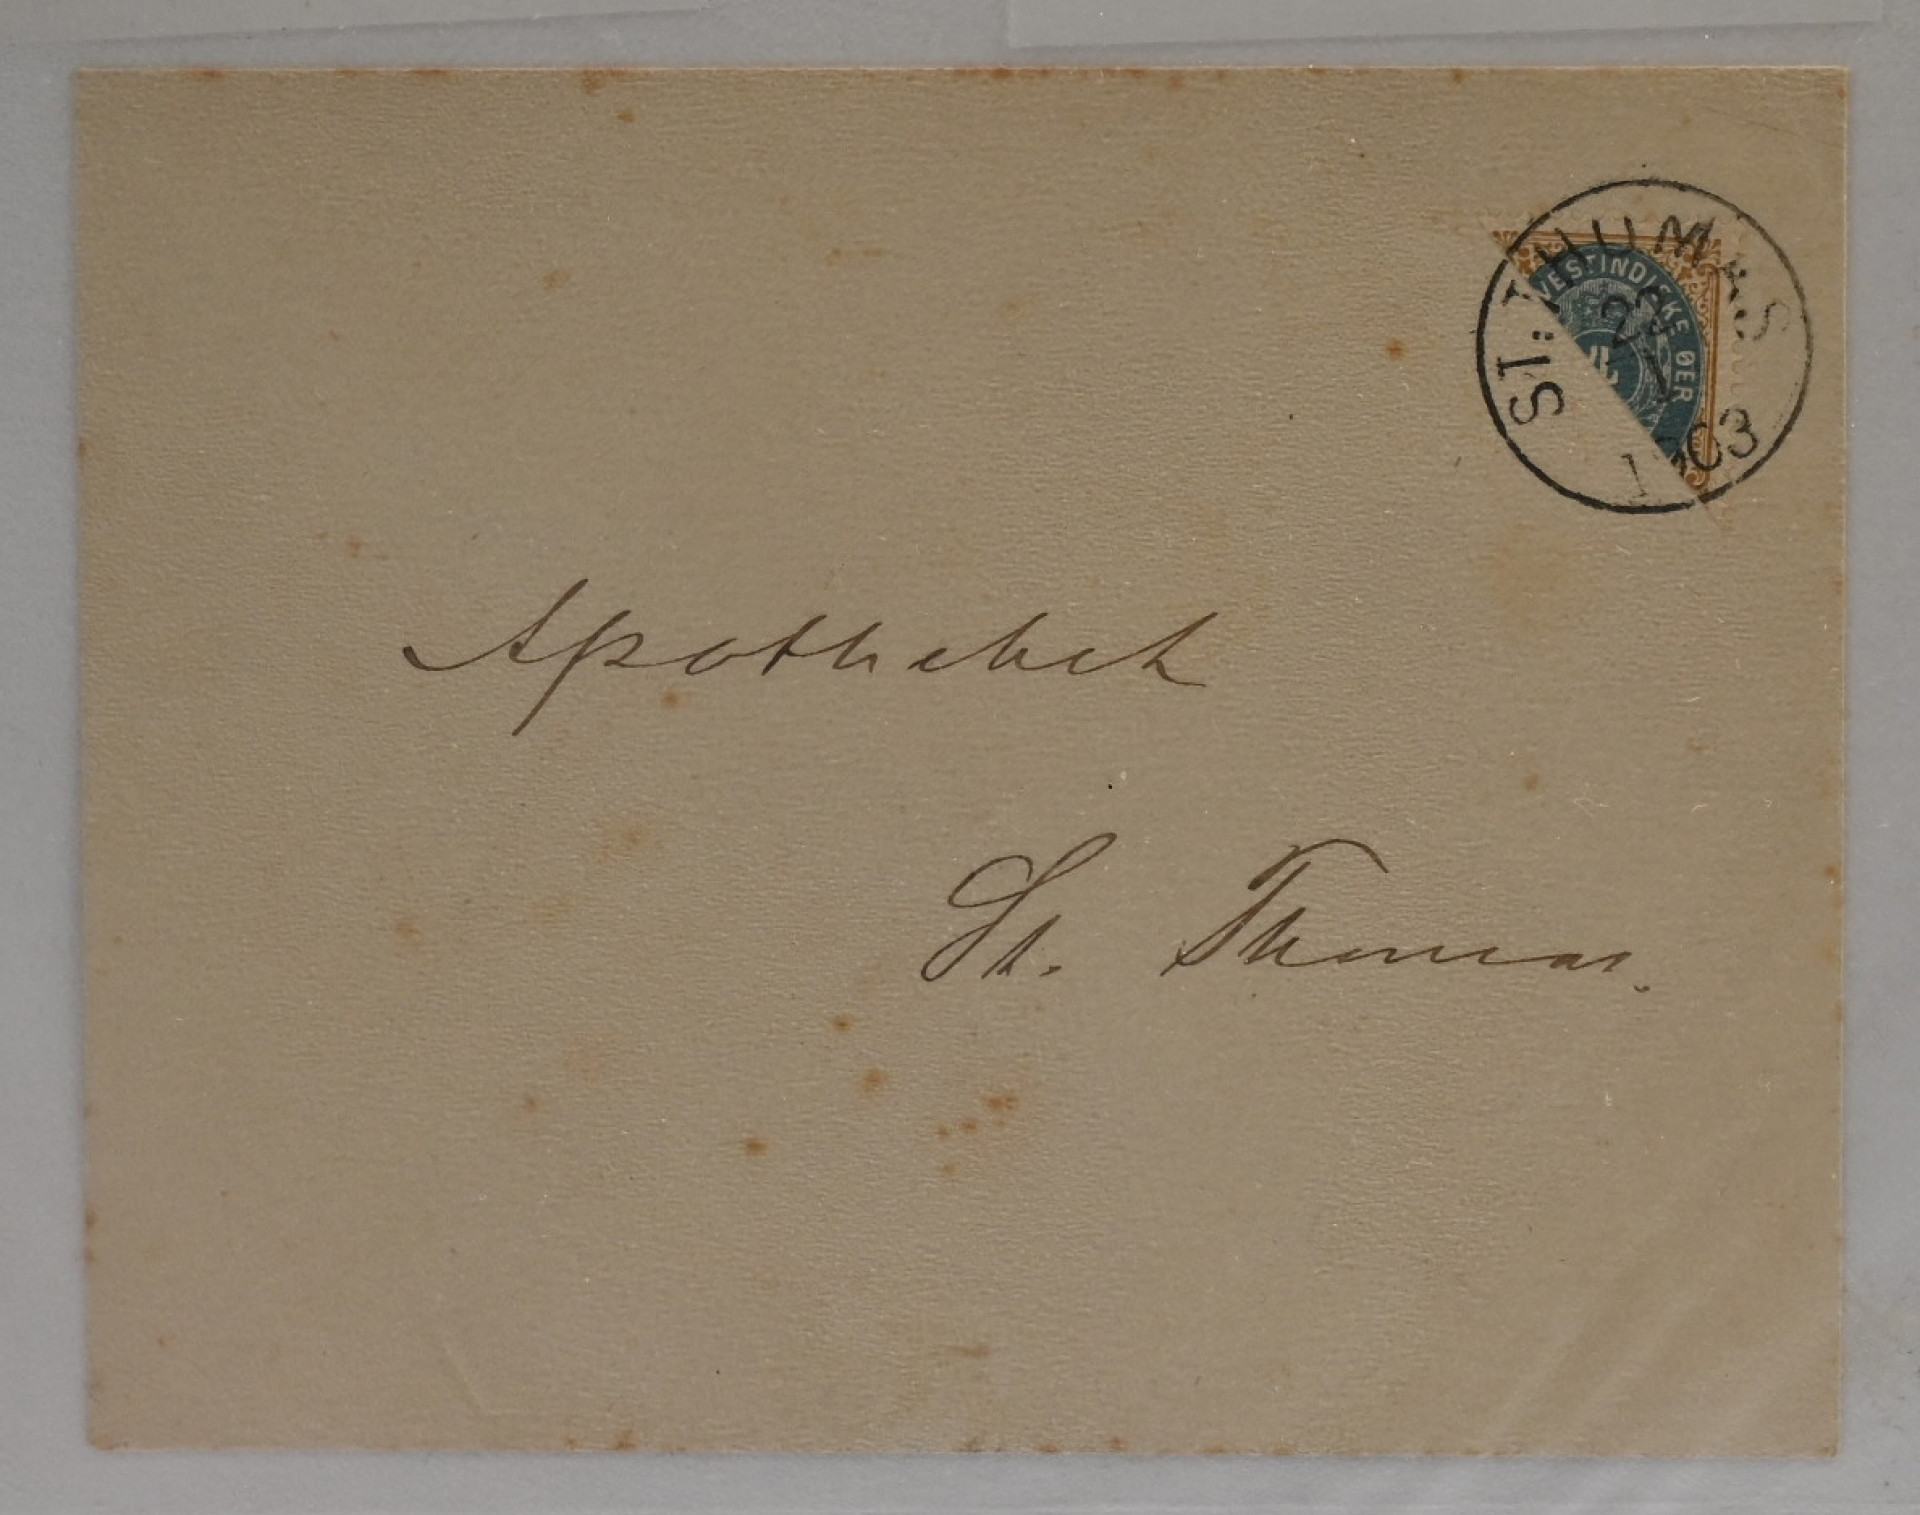 ST: THOMAS
1903
VESTINDISKE ØER
4
Apotheket
St. Thomas.